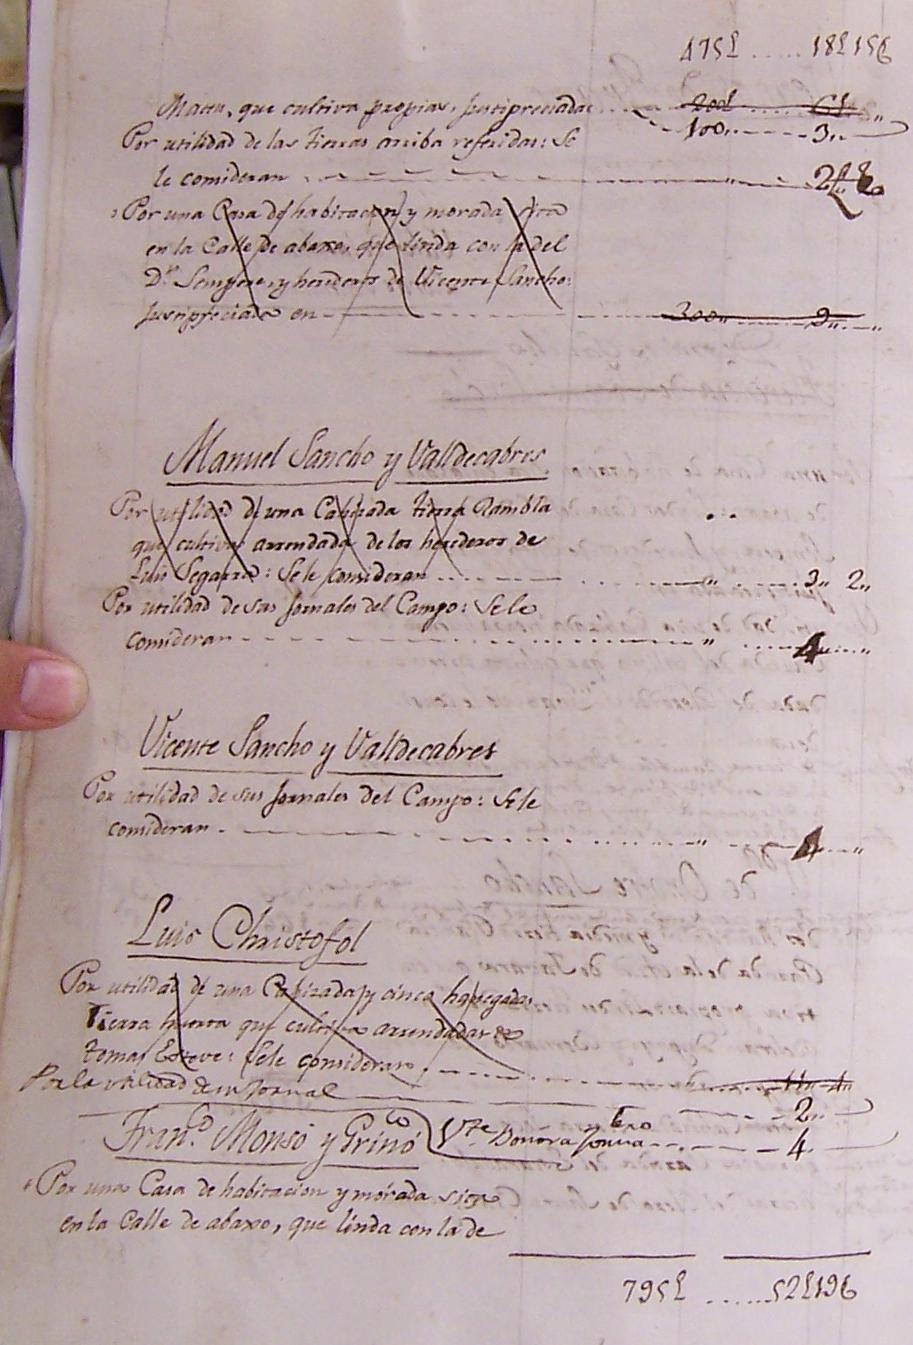 475£ ..... 18£15§
Matta, que cultiva propias, justipreciadas .. 200£ ..... 6£
100,, ---- 3,,
Por utilidad de las tierras arriba referidas: Se
le consideran
Por una Casa de habitacion y morada sita
en la Calle de abaxo, que linda con la del
Dr. Sempere, y herederos de Vicente Sancho:
justipreciada en - - - - 300,, ..... 9,,
Manuel Sancho y Valldecabres
Por utilidad de una Cahizada tierra Rambla
que cultiva arrendada de los herederos de
Luis Segarra: Sele consideran .... ,, ..... 3,, 2,,
Por utilidad de sus Jornales del Campo: Sele
consideran - - - - ,, ..... 4 ,,
Vicente Sancho y Valldecabres
Por utilidad de sus Jornales del Campo: Sele
consideran - - - - ,, ..... 4 ,,
Luis Christofol
Por utilidad de una Cahizada y cinco hanegadas
Tierra huerta que cultiva arrendadas de
tomas Esteve: Sele consideran - - - - 11,, 4,,
Por la utilidad de su Jornal - - - 2,,
Franco. Monsó y Griñó Vte Bonora y - - - 4
Por una Casa de habitacion y morada sita
en la Calle de abaxo, que linda con la de
795£ ...... 52£19§